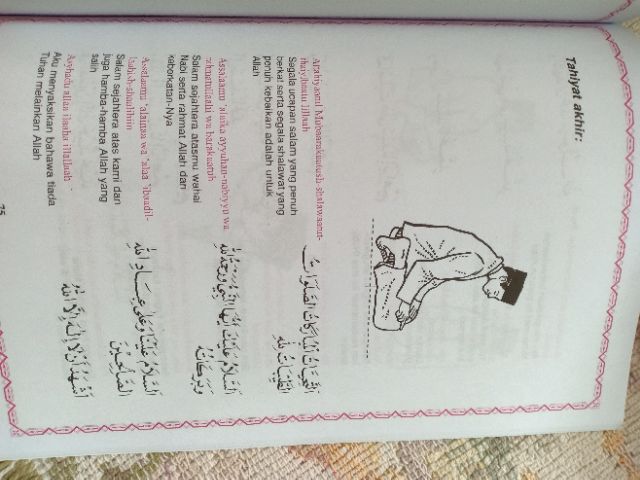 Tahiyat akhir:
Attahiyaatul Mubaarakaatush-shalawaatut-
thayyibaatu lillaah
Segala ucapan salam yang penuh
berkat serta segala shalawat yang
penuh kebaikan adalah untuk
Allah
اَلتَّحِيَّاتُ الْمُبَارَكَاتُ الصَّلَوَاتُ
الطَّيِّبَاتُ لِلّٰهِ
Assalaamu 'alaika ayyuhan-nabiyyu wa
rahmatullaah wa barakaatuh
Salam sejahtera atasmu wahai
Nabi serta rahmat Allah dan
keberkatan-Nya
اَلسَّلَامُ عَلَيْكَ اَيُّهَا النَّبِيُّ وَرَحْمَةُ اللّٰهِ
وَبَرَكَاتُهُ
Assalaamu 'alainaa wa 'alaa 'ibaadil-
laahish-shaalihiin
Salam sejahtera atas kami dan
juga hamba-hamba Allah yang
salih
اَلسَّلَامُ عَلَيْنَا وَعَلَى عِبَادِ اللّٰهِ
الصَّالِحِيْنَ
Asyhadu allaa ilaaha illallaah
Aku menyaksikan bahawa tiada
Tuhan melainkan Allah
اَشْهَدُ اَنْ لَا اِلٰهَ اِلَّا اللّٰهُ
75